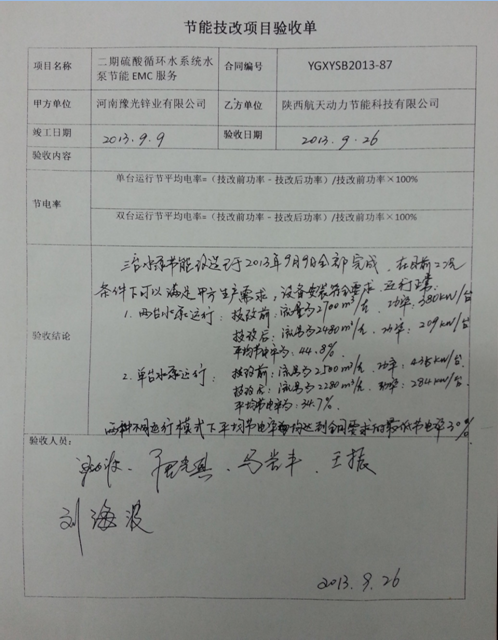 节能技改项目验收单
项目名称 二期硫酸循环水系统水泵节能 EMC 服务 合同编号 YGXYSB2013-87
甲方单位 河南豫光锌业有限公司 乙方单位 陕西航天动力节能科技有限公司
竣工日期 2013.9.9 验收日期 2013.9.26
验收内容
节电率
单台运行节平均电率=（技改前功率 - 技改后功率）/技改前功率×100%
双台运行节平均电率=（技改前功率 - 技改后功率）/技改前功率×100%
验收结论
三台水泵节能改造于2013年9月9日全部完成，在目前工况
条件下可以满足甲方生产需求，设备安装符合要求，运行正常
1. 两台水泵运行：技改前：流量为2700m³/台，功率：380kW/台
技改后：流量为2480m³/台，功率：209kW/台
平均节电率为：44.8%
2. 单台水泵运行：技改前：流量为2500m³/台，功率：435kW/台
技改后：流量为2280m³/台，功率：284kW/台
平均节电率为：34.7%
两种不同运行模式下平均节电率均达到合同要求的最低节电率30%
验收人员：
马岩丰、王振
刘海波
2013.9.26